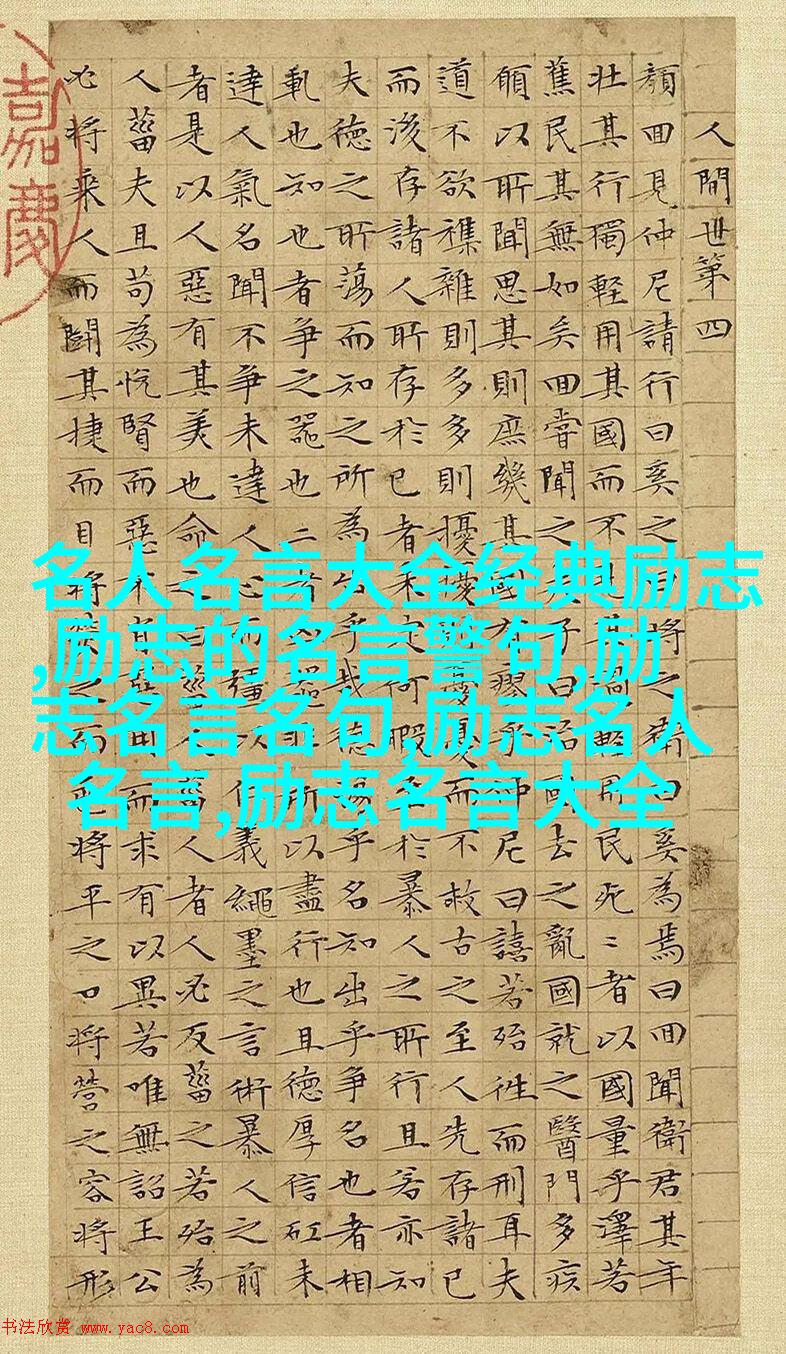 人間世第四
顏回見仲尼請行曰奚之曰將之衛曰奚為焉曰回聞衛君其年
壯其行獨輕用其國而不見其過輕用民死〻者以國量乎澤若
蕉民其無如矣回嘗聞之夫子曰治國去之亂國就之醫門多疾
願以所聞思其則庶幾其國有瘳乎仲尼曰譆若殆往而刑耳夫
道不欲襍雜則多多則擾擾憂憂而不救古之至人先存諸己
而後存諸人所存於己者未定何暇於暴人之所行且若亦知
夫德之所蕩而知之所為出乎哉德蕩乎名知出乎爭名也者相
軋也知也者爭之器也二者凶器非所以盡行也且德厚信矼未
達人氣名聞不爭未達人心而彊以仁義繩墨之言術暴人之前
者是以人惡有其美也命之曰菑人菑人者人必反菑之若殆為
人菑夫且苟為悅賢而惡不肖惡用而求有以異若唯無詔王公
必將乘人而鬪其捷而目將熒之而色將平之口將營之容將形
嘉慶
名人名言大全经典励志
,励志的名言警句,励
志名言名句,励志名人
名言,励志名言大全
书法欣赏 www.yac8.com